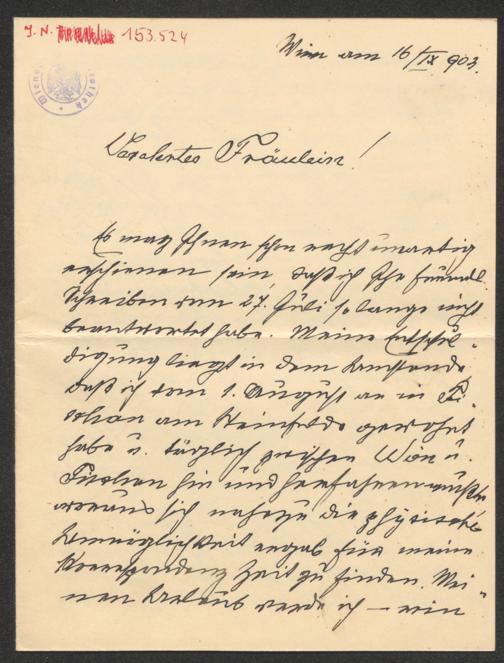 J. N. 153.524
Wien am 16/IX 903.
Verehrtes Fräulein!
Es mag Ihnen schon recht unartig
erschienen sein, daß ich Ihr freundl.
Schreiben vom 27. Juli so lange nicht
beantwortet habe. Meine Entschul-
digung liegt in dem Umstande
daß ich vom 1. August an in Fi-
schau am Steinfelde gewohnt
habe u. täglich zwischen Wien u.
Fischau hin und herfahren mußte
woraus sich nahezu die physische
Unmöglichkeit ergab für meine
Korrespondenz Zeit zu finden. Mei-
nen Urlaub werde ich — ein